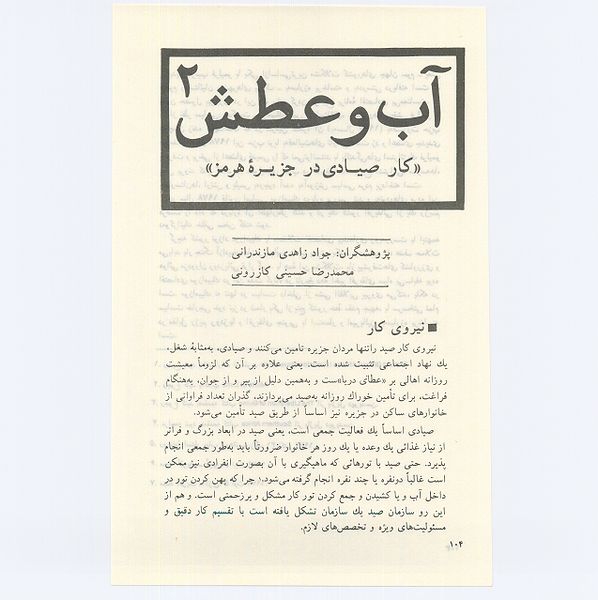 آب و عطش ۲
«کار صیادی در جزیرهٔ هرمز»
پژوهشگران: جواد زاهدی مازندرانی
محمدرضا حسینی کازرونی
■ نیروی کار
نیروی کار صید راتنها مردان جزیره تامین می‌کنند و صیادی، به‌مثابهٔ شغل،
یك نهاد اجتماعی تثبیت شده است. یعنی علاوه بر آن که لزوماً معیشت
روزانه اهالی بر «عطای دریا»ست و به‌همین دلیل از پیر و از جوان، به‌هنگام
فراغت، برای تأمین خوراك روزانه به‌صید می‌پردازند. گذران تعداد فراوانی از
خانوارهای ساکن در جزیره نیز اساساً از طریق صید تأمین می‌شود.
صیادی اساساً یك فعالیت جمعی است، یعنی صید در ابعاد بزرگ و فراتر
از نیاز غذائی یك وعده یا یك روز هر خانوار ضرورتاً باید به‌طور جمعی انجام
پذیرد. حتی صید با تورهائی که ماهیگیری با آن بصورت انفرادی نیز ممکن
است غالباً دونفره یا چند نفره انجام گرفته می‌شود،۱ چرا که پهن کردن تور در
داخل آب و یا کشیدن و جمع کردن تور کار مشکل و پرزحمتی است. و هم از
این رو سازمان صید یك سازمان تشکل یافته است با تقسیم کار دقیق و
مسئولیت‌های ویژه و تخصص‌های لازم.
۱۰۴